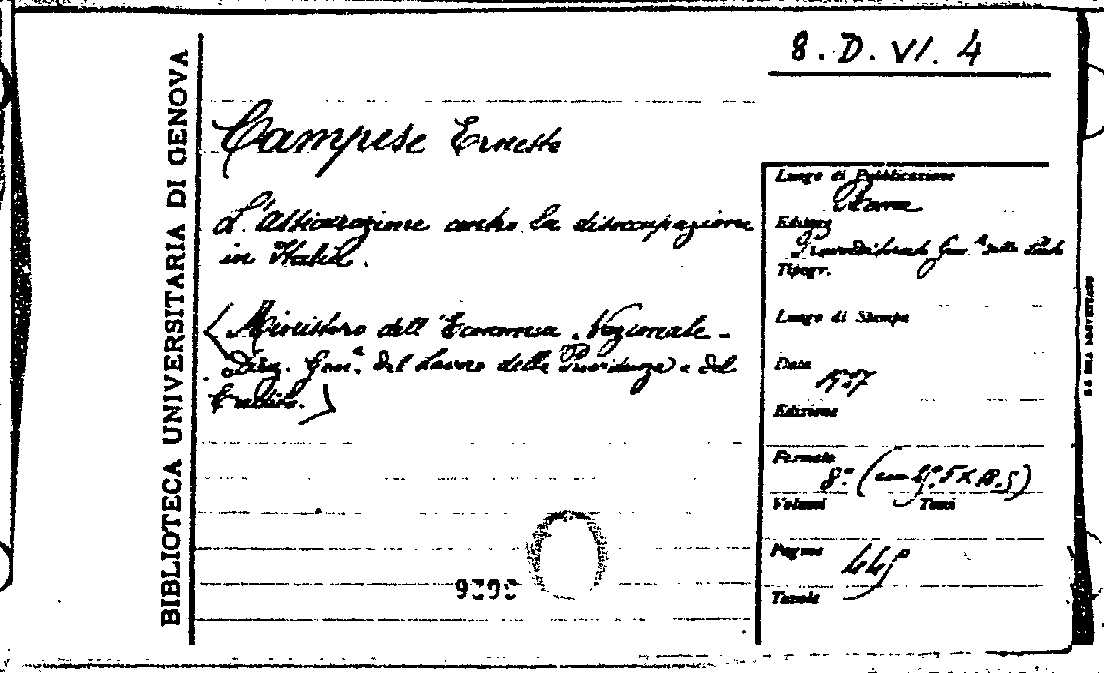 8. D. VI. 4
BIBLIOTECA UNIVERSITARIA DI GENOVA
Campese Ernesto
L'Assicurazione contro la disoccupazione
in Italia.
(Ministero dell'Economia Nazionale -
Direz. Gen. del Lavoro della Previdenza e del
Credito.)
Luogo di Pubblicazione
Roma
Editore
Provveditorato Gen. dello Stato
Tipogr.
Luogo di Stampa
Data
1927
Edizione
Formato
8°
Volumi Tomi
Pagine
Tavole